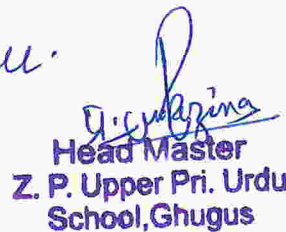 Head Master
Z. P. Upper Pri. Urdu
School,Ghugus